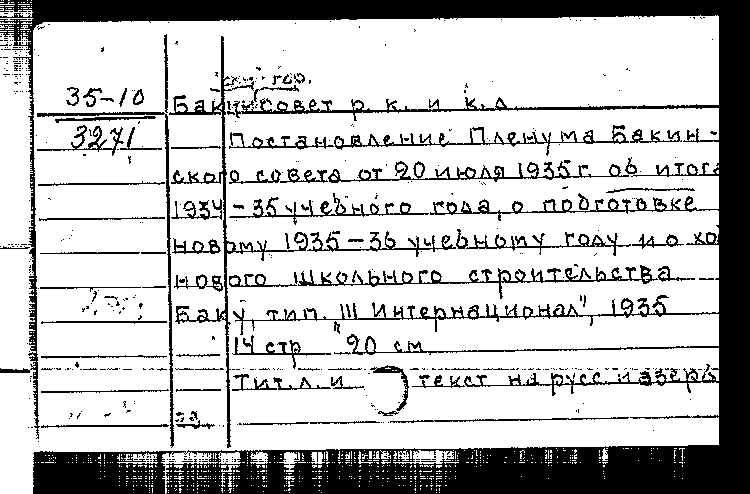 гор.
35-10 Бакинсовет р. к. и к. д.
3271 Постановление Пленума Бакин-
ского совета от 20 июля 1935 г. об итога
1934-35 учебного года, о подготовке
новому 1935-36 учебному году и о хо
нового школьного строительства
Баку, тип. "III Интернационал", 1935
14 стр 20 см
Тит. л. и текст на русс. и азерб
яз.